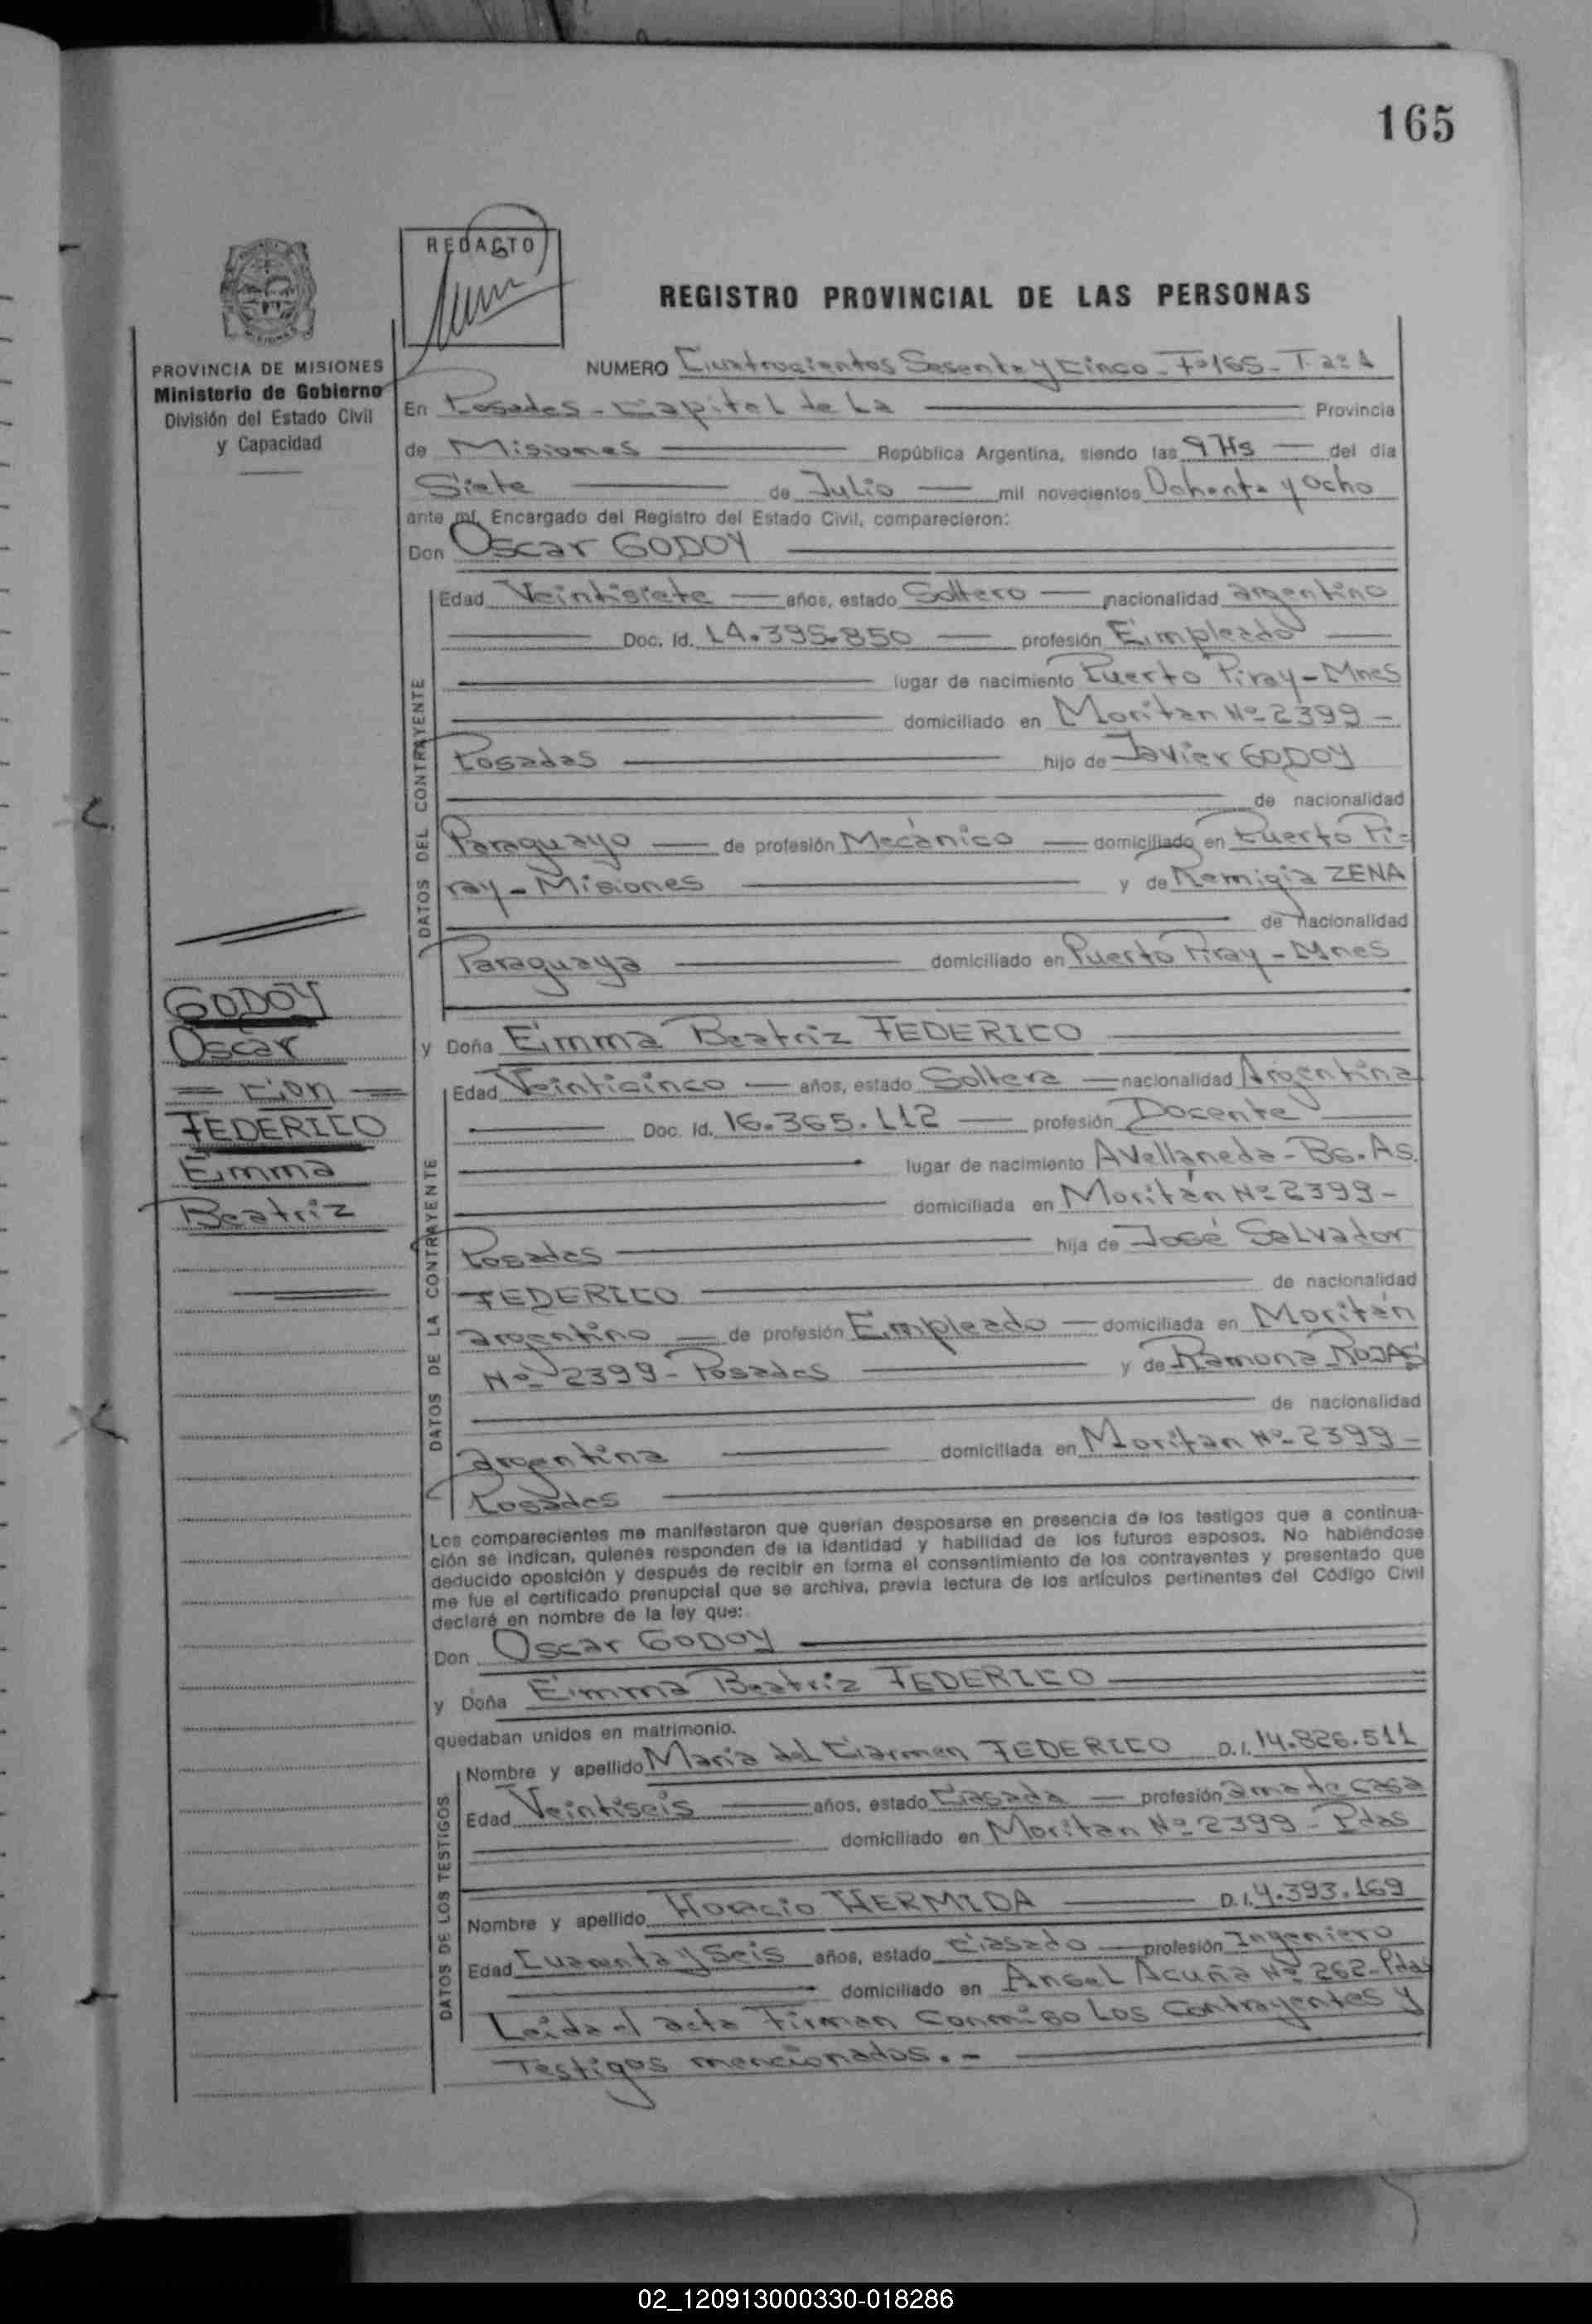 165
REDACTO
REGISTRO PROVINCIAL DE LAS PERSONAS
PROVINCIA DE MISIONES
Ministerio de Gobierno
División del Estado Civil
y Capacidad
NUMERO Cuatrocientos Sesenta y Cinco - Fº165 - T 2º A
En Posadas - Capital de La Provincia
de Misiones República Argentina, siendo las 9 Hs del día
Siete de Julio mil novecientos Ochenta y Ocho
ante mí, Encargado del Registro del Estado Civil, comparecieron:
Don Oscar GODOY
DATOS DEL CONTRAYENTE
Edad Veintisiete años, estado Soltero nacionalidad argentino
Doc. Id. 14.395.850 profesión Empleado
lugar de nacimiento Puerto Piray - Mnes
domiciliado en Moritan Nº 2399 -
Posadas hijo de Javier GODOY
de nacionalidad
Paraguayo de profesión Mecánico domiciliado en Puerto Pi=
ray - Misiones y de Remigia ZENA
de nacionalidad
Paraguaya domiciliado en Puerto Piray - Mnes
GODOY
Oscar
= Con =
FEDERICO
Emma
Beatriz
y Doña Emma Beatriz FEDERICO
DATOS DE LA CONTRAYENTE
Edad Veinticinco años, estado Soltera nacionalidad Argentina
Doc. Id. 16.365.112 profesión Docente
lugar de nacimiento Avellaneda - Bs. As.
domiciliada en Moritán Nº 2399 -
Posadas hija de José Salvador
FEDERICO de nacionalidad
argentino de profesión Empleado domiciliada en Moritán
Nº 2399 - Posadas y de Ramona ROJAS
de nacionalidad
argentina domiciliada en Moritan Nº 2399 -
Posadas
Los comparecientes me manifestaron que querían desposarse en presencia de los testigos que a continua-
ción se indican, quienes responden de la identidad y habilidad de los futuros esposos. No habiéndose
deducido oposición y después de recibir en forma el consentimiento de los contrayentes y presentado que
me fue el certificado prenupcial que se archiva, previa lectura de los artículos pertinentes del Código Civil
declaré en nombre de la ley que:
Don Oscar GODOY
y Doña Emma Beatriz FEDERICO
quedaban unidos en matrimonio.
DATOS DE LOS TESTIGOS
Nombre y apellido María del Carmen FEDERICO D.I. 14.826.511
Edad Veintiseis años, estado Casada profesión ama de casa
domiciliado en Moritan Nº 2399 - Pdas
Nombre y apellido Horacio HERMIDA D.I. 4.393.169
Edad Cuarenta y Seis años, estado Casado profesión Ingeniero
domiciliado en Angel Acuña Nº 262 - Pdas
Leida el acta Firman Conmigo Los Contrayentes y
Testigos mencionados. -
02_120913000330-018286